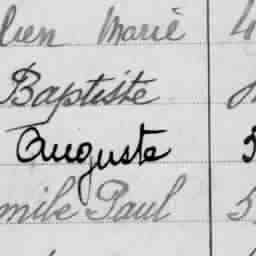 lien Marie
Baptiste
Auguste 5
mile Paul 5